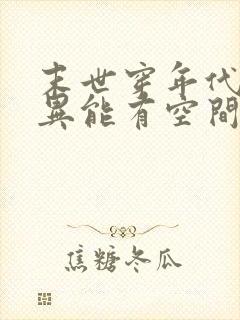 末世穿年代
異能有空間
焦糖冬瓜